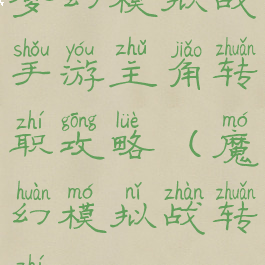 梦幻模拟战
shǒu yóu zhǔ jiǎo zhuǎn
手游主角转
zhí gōng lüè mó
职攻略（魔
huàn mó nǐ zhàn zhuǎn
幻模拟战转
zhí